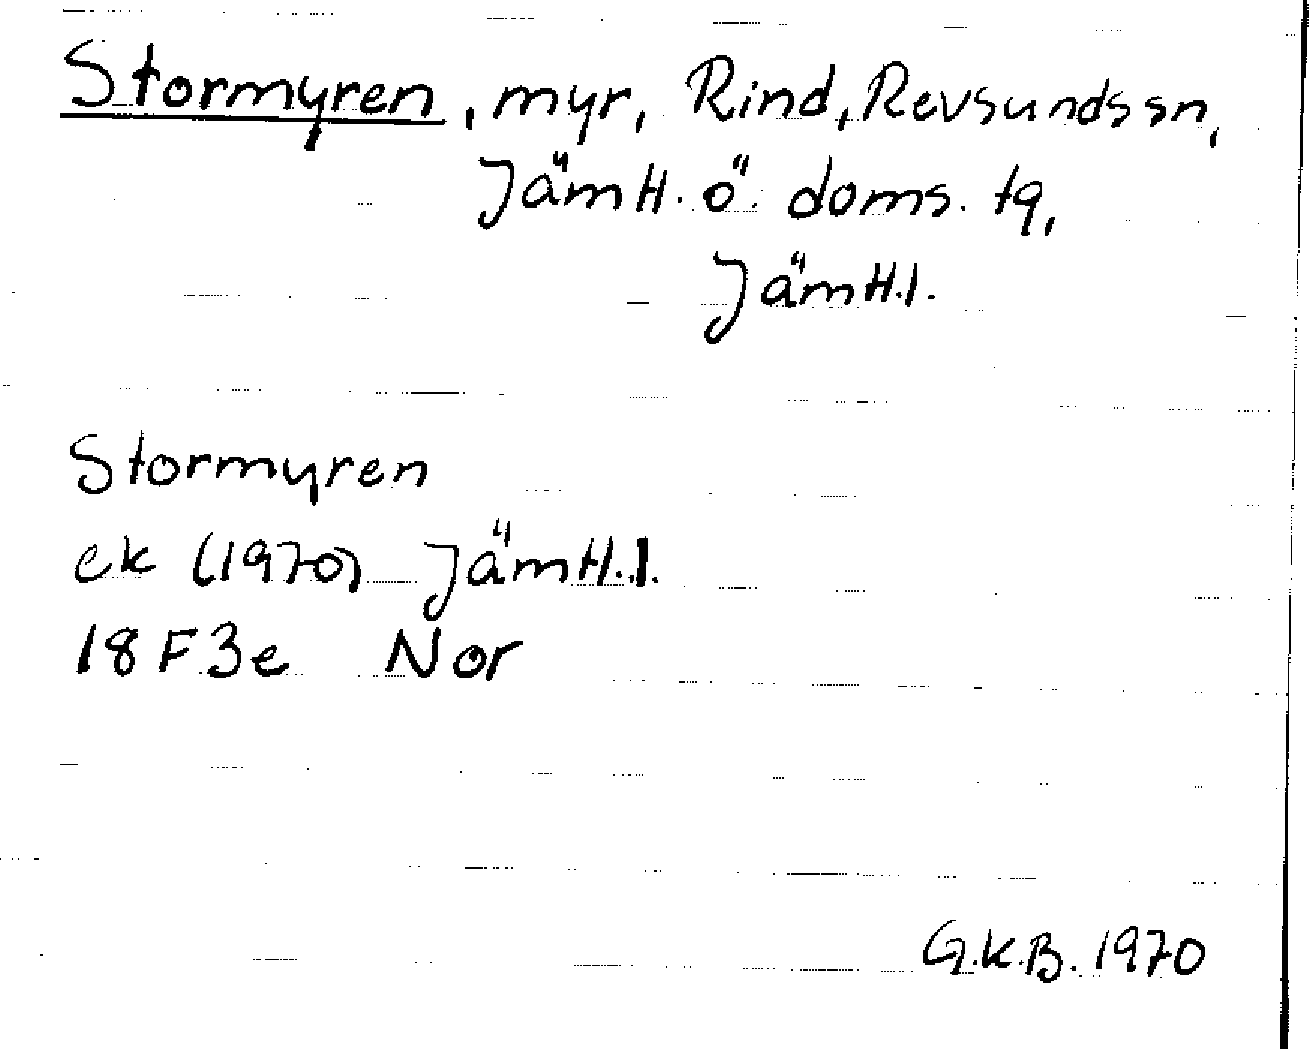 Stormyren, myr, Rind, Revsunds sn,
Jämtl. ö. doms. tg,
Jämtl. l.
Stormyren
ek (1970) Jämtl. l.
18 F 3e Nor
G.K.B. 1970